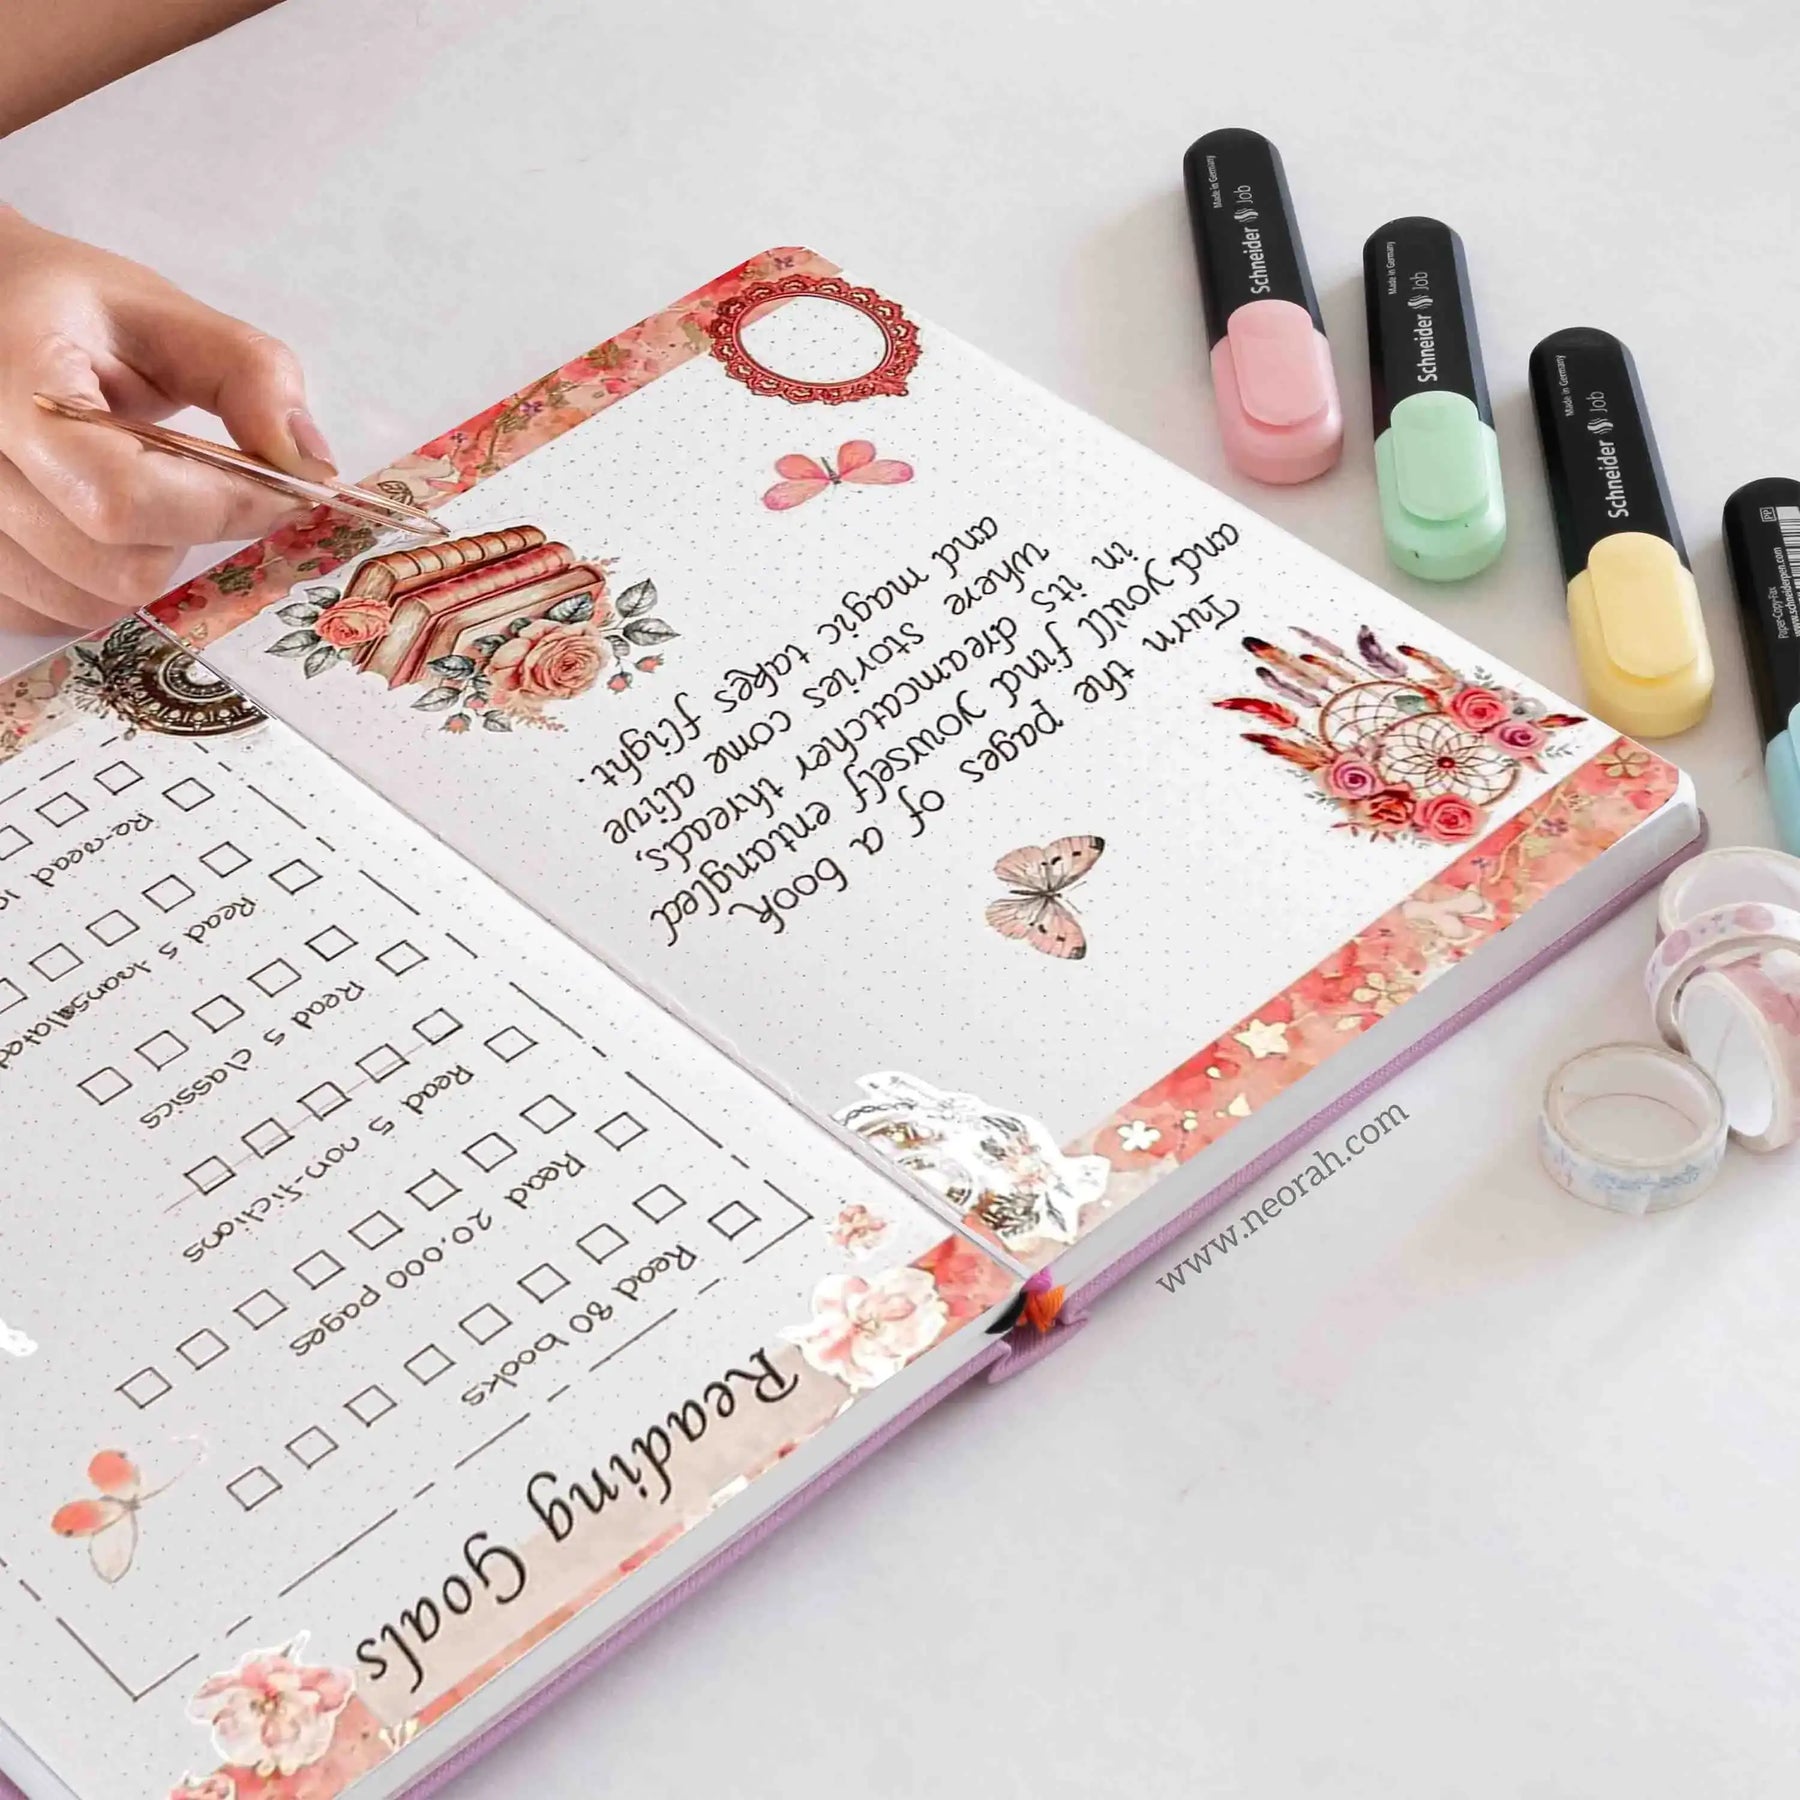 Reading Goals
Read 80 books
Read 20.000 pages
Read 5 non-fictions
Read 5 classics
Read 5 translated
Re-read
Turn the pages of a book
and you'll find yourself entangled
in its dreamcatcher threads,
where stories come alive
and magic takes flight.
Schneider Job
Made in Germany
Schneider Job
Made in Germany
Schneider Job
Made in Germany
PP
Paper-Copy-Fax
www.schneiderpen.com
www.neorah.com